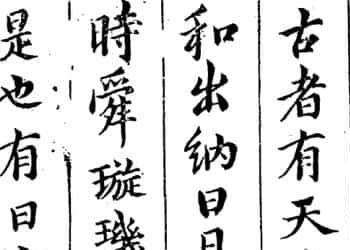 古者有天
和出納日
時舜璇璣
是也有日